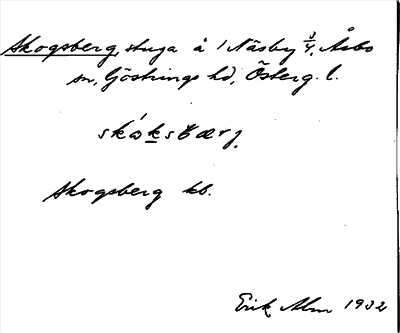 Skogsberg, stuga å 1 Näsby 3/4, Åsbo
sn, Göstrings hd, Österg. l.
skåksbærj.
Skogsberg kb.
Erik Alm 1932